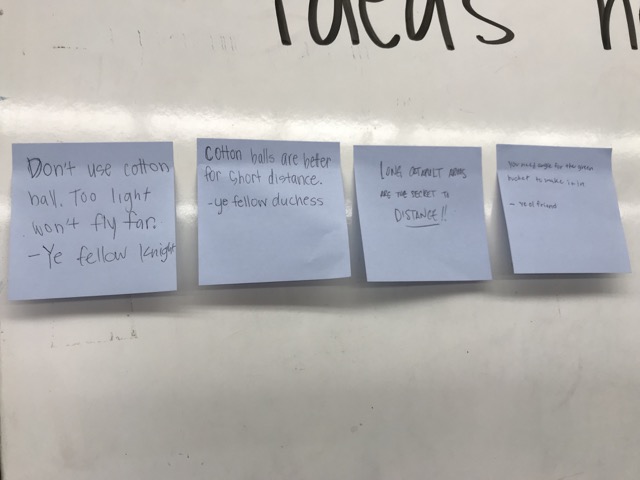 Ideas
Don't use cotton
ball. Too light
won't fly far.
-Ye fellow knight
Cotton balls are beter
for short distance.
-ye fellow duchess
LONG CATAPULT ARMS
ARE THE SECRET TO
DISTANCE!!
You need angle for the green
bucket to make it in
- Ye ol friend